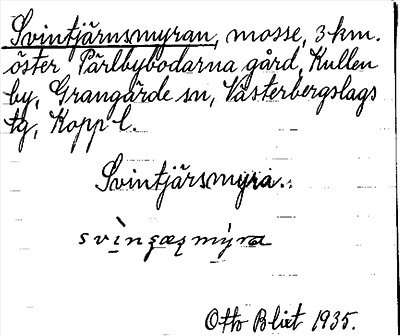 Svintjärnsmyran, mosse, 3 km.
öster Pärlbybodarna gård, Kullen
by, Grangärde sn, Västerbergslags
tg, Kopp. l.
Svintjärsmyra.
Otto Blixt 1935.